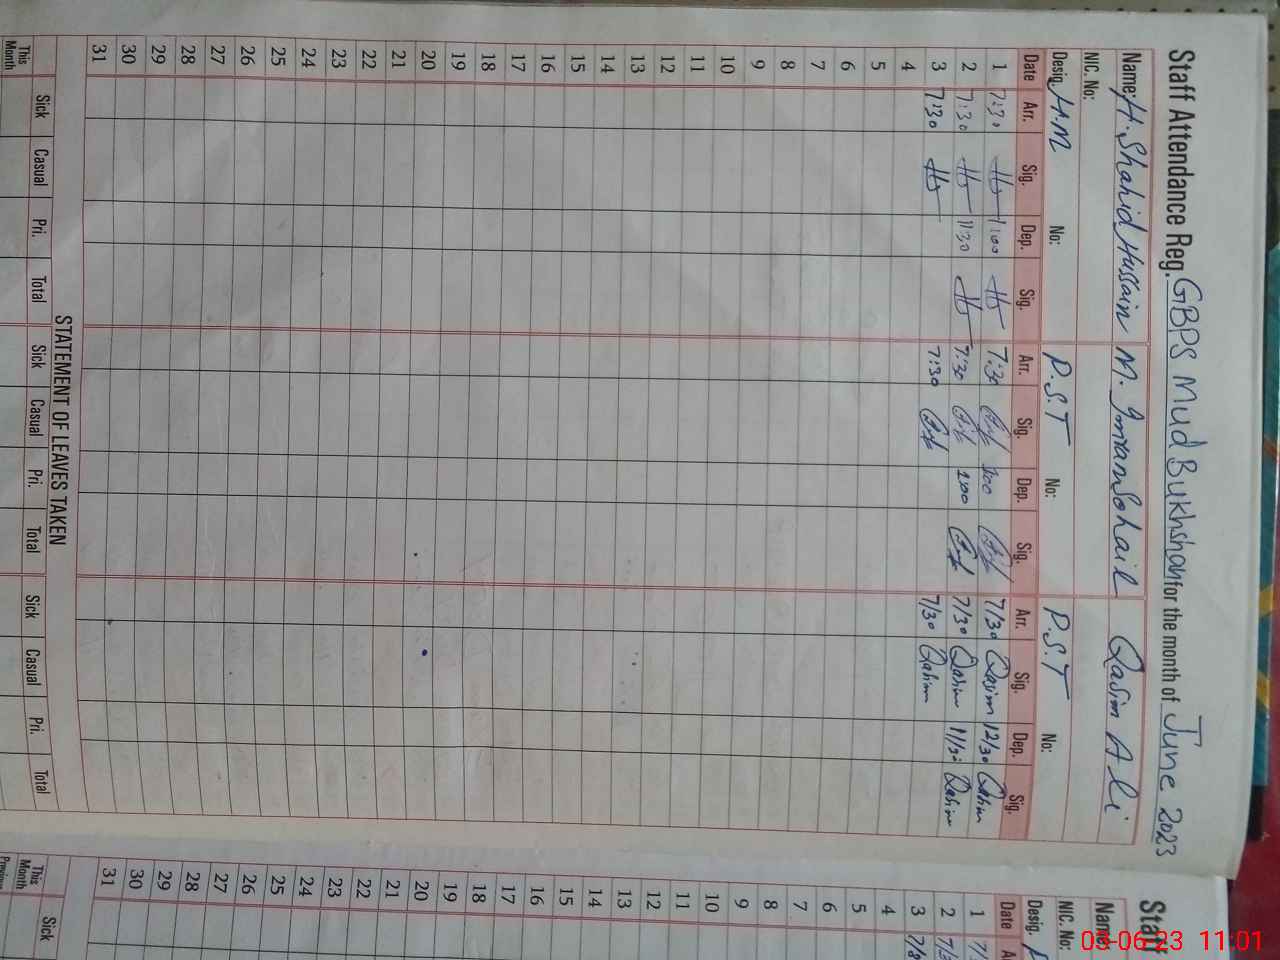 Staff Attendance Reg. GBPS Mud Bukhshah for the month of June 2023
Name: H. Shahid Hussain M. Imran Sohail Qasim Ali
NIC. No:
Desig. H.M No: P.S.T No: P.S.T No:
Date Arr. Sig. Dep. Sig. Arr. Sig. Dep. Sig. Arr. Sig. Dep. Sig.
1 7:30 1:00 7:30 1:00 7/30 Qasim 12/30 Qasim
2 7:30 11:30 7:30 1:00 7/30 Qasim 11/30 Qasim
3 7:30 7:30 7/30 Qasim
4
5
6
7
8
9
10
11
12
13
14
15
16
17
18
19
20
21
22
23
24
25
26
27
28
29
30
31
STATEMENT OF LEAVES TAKEN
Sick Casual Pri. Total Sick Casual Pri. Total Sick Casual Pri. Total
This Month
Staff
Name:
NIC. No:
Desig.
Date
1
2
3
4
5
6
7
8
9
10
11
12
13
14
15
16
17
18
19
20
21
22
23
24
25
26
27
28
29
30
31
Sick
This Month
03-06-23 11:01